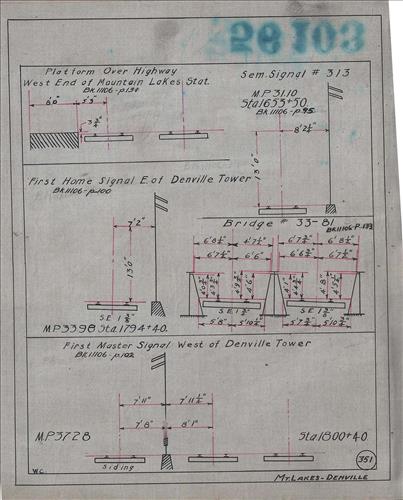 56103
Platform Over Highway
West End of Mountain Lakes Stat.
BK.11106-p.131
6'0" 5'5"
3 3/4"
Sem. Signal # 313
M.P 31.10
Sta 1655+50
BK.11106-p.95
8'2 1/2"
13'0"
First Home Signal E. of Denville Tower
BK.11106-p.100
7'2"
13'0"
S.E 1 3/4"
M.P.33.98 Sta.1794+40.
Bridge # 33-81
BK.11106-P.133
6'8 1/2" 4'7 1/2" 6'7 3/4" 6'8 1/2"
6'7 1/2" 6'6" 6'6 3/4" 6'7 1/2"
5'8" 5'10 1/2" 5'7 3/4" 5'10 3/4"
First Master Signal West of Denville Tower
BK.11106-p.102
7'11" 7'11 1/2"
7'8" 8'1"
M.P.37.28
Sta.1800+40.
Siding
W.C.
351
MT. LAKES-DENVILLE